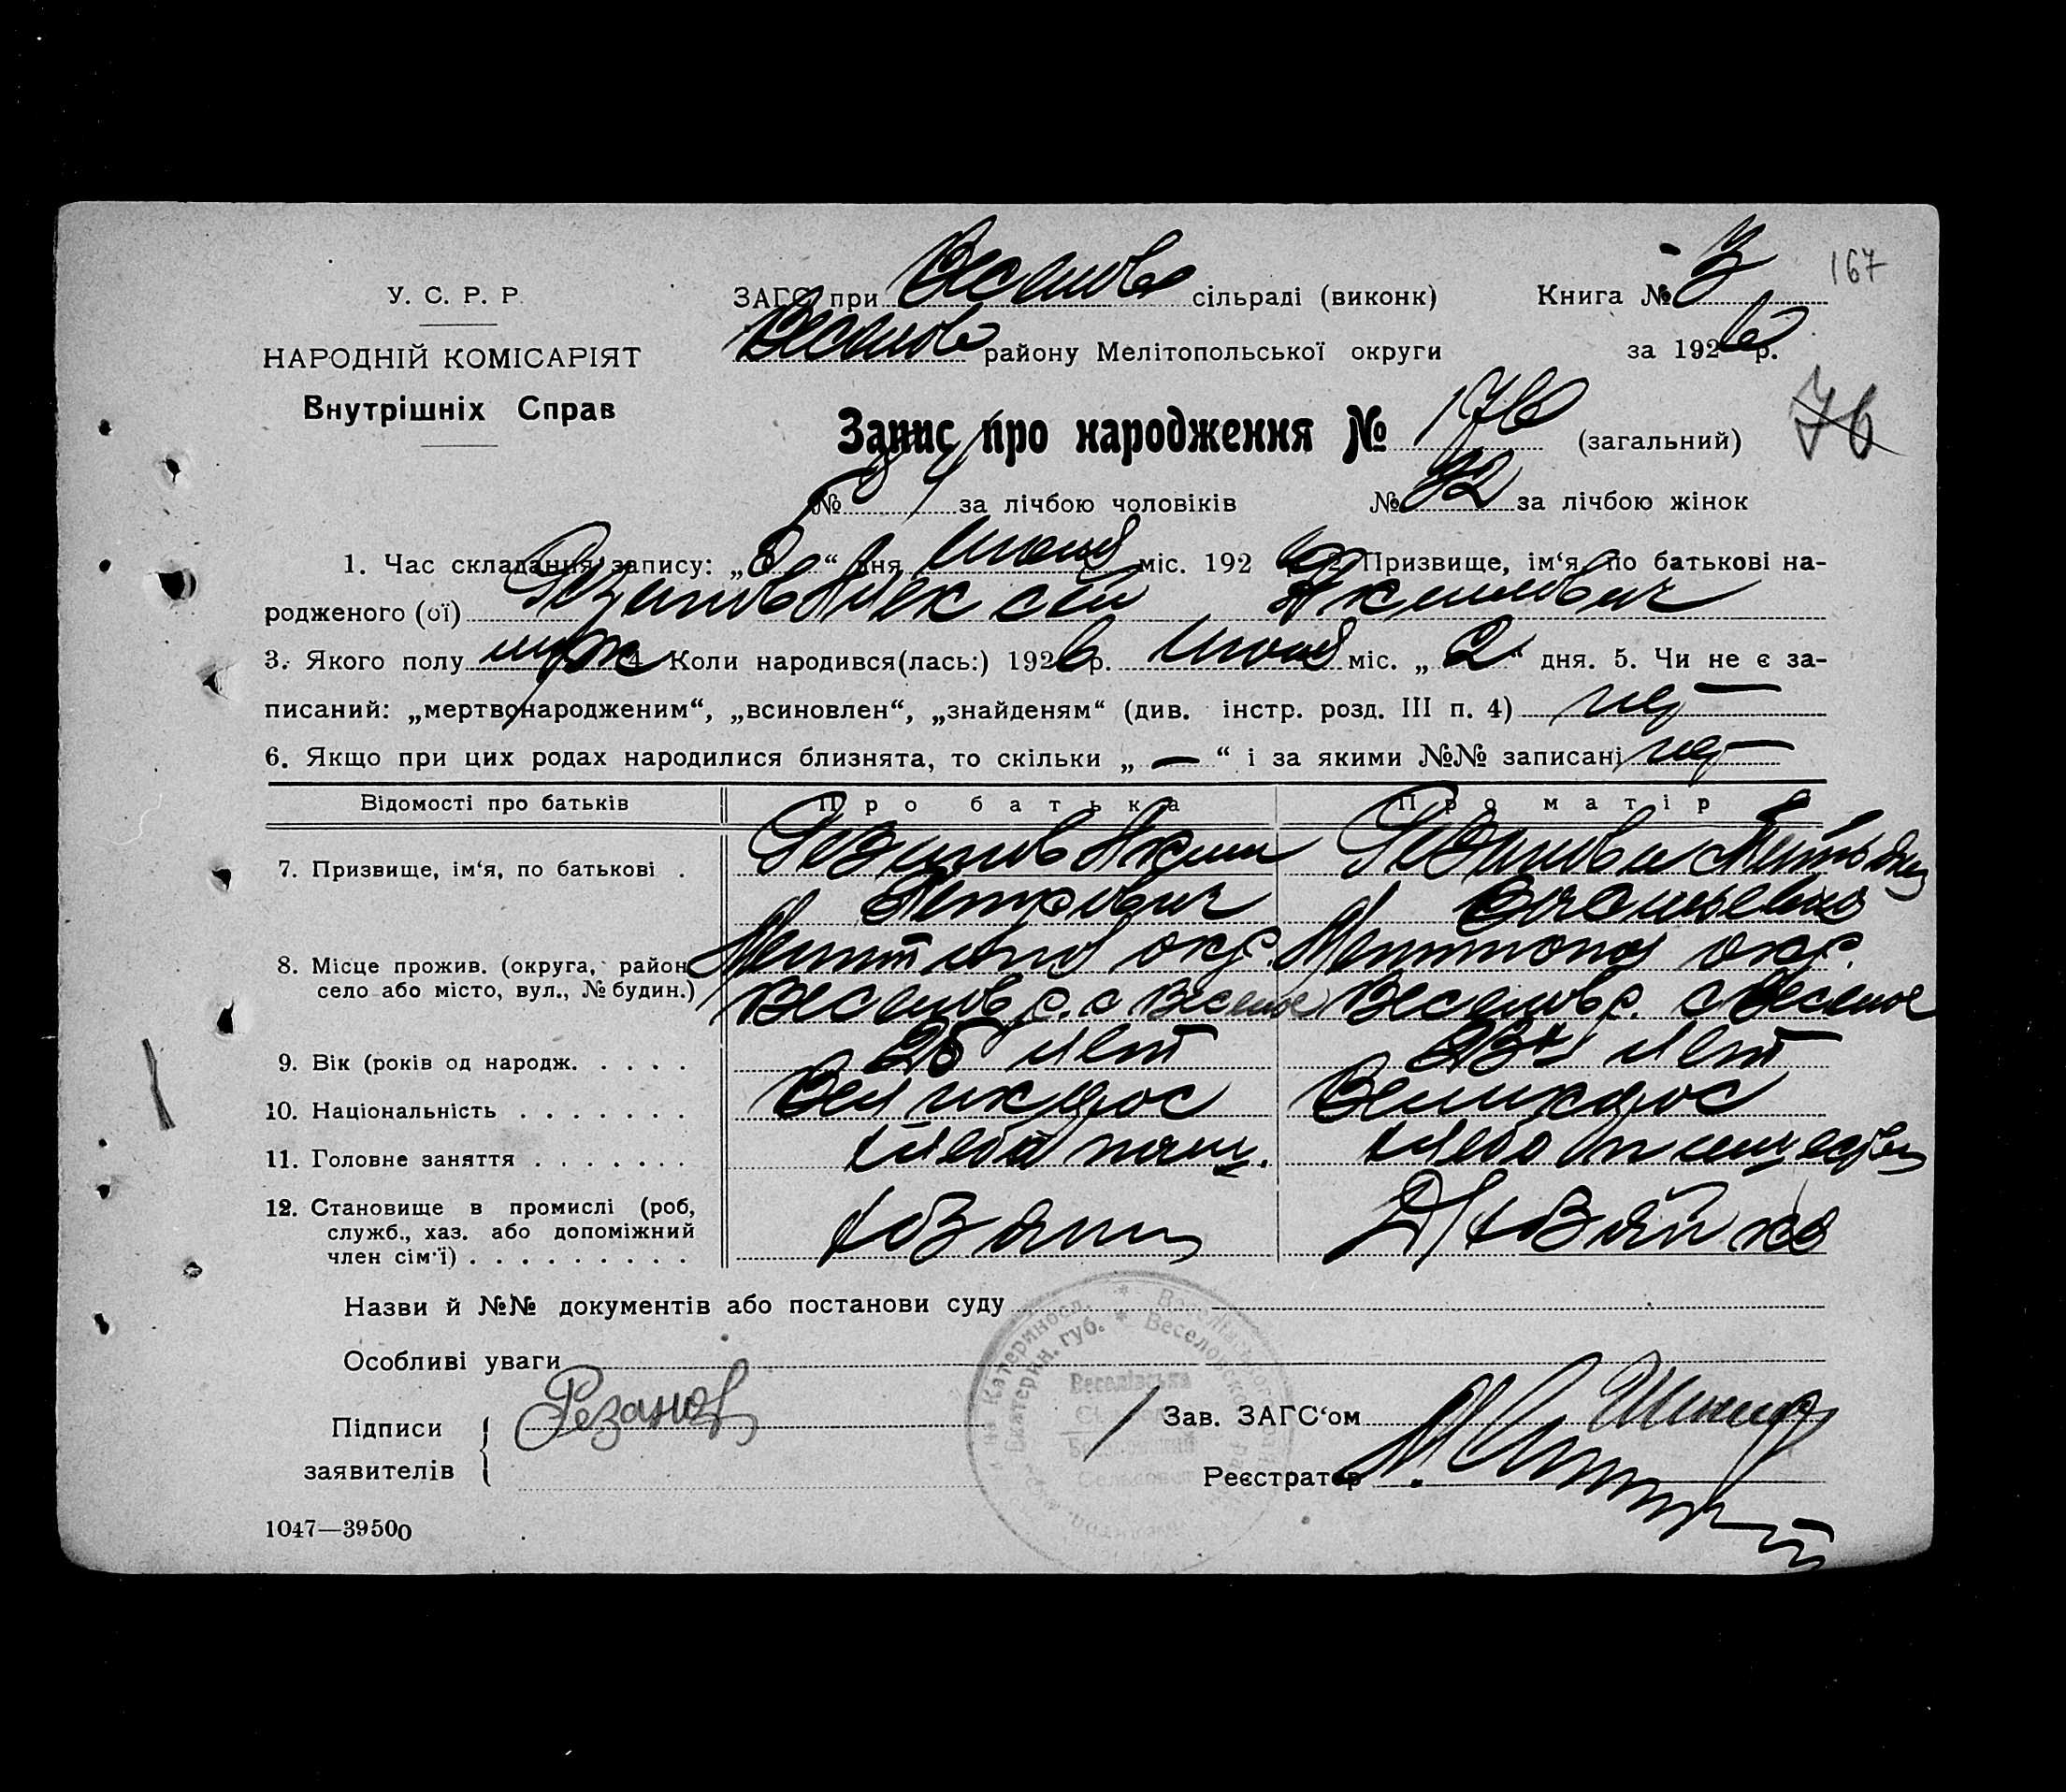 167
У. С. Р. Р.
НАРОДНІЙ КОМІСАРІЯТ
Внутрішніх Справ
ЗАГС при Веселов сільраді (виконк) Книга № 3
Веселов району Мелітопольської округи за 1926 р.
Запис про народження № 176 (загальний) 76
№ за лічбою чоловіків № 92 за лічбою жінок
1. Час складання запису: „8“ дня Июля міс. 1926 р. 2. Призвище, ім‘я, по батькові на-
родженого (ої) Резанов Алексей Акимович
3. Якого полу муж 4. Коли народився(лась:) 1926 р. Июля міс. „2“ дня. 5. Чи не є за-
писаний: „мертвонародженим“, „всиновлен“, „знайденям“ (див. інстр. розд. III п. 4) нет
6. Якщо при цих родах народилися близнята, то скільки „—“ і за якими №№ записані нет
Відомості про батьків Про батька Про матір
7. Призвище, ім‘я, по батькові . Резанов Аким Резанова Татьяна
Петрович
8. Місце прожив. (округа, район, село або місто, вул., № будин.) окр. Мелитопол окр.
Веселов р. с Веселое Веселов р. с Веселое
9. Вік (років од народж. . . . . 25 лет 23 лет
10. Національність . . . . . . . Великорос Великорос
11. Головне заняття . . . . . . . Хлебопаш. Хлебопашество
12. Становище в промислі (роб, служб., хаз. або допоміжний член сім‘ї) . . . . . . . . . Хозяин Д/Хозяйка
Назви й №№ документів або постанови суду
Особливі уваги
Підписи заявителів Резанов
Зав. ЗАГС‘ом
Реєстратор
Веселівська
1047—39500